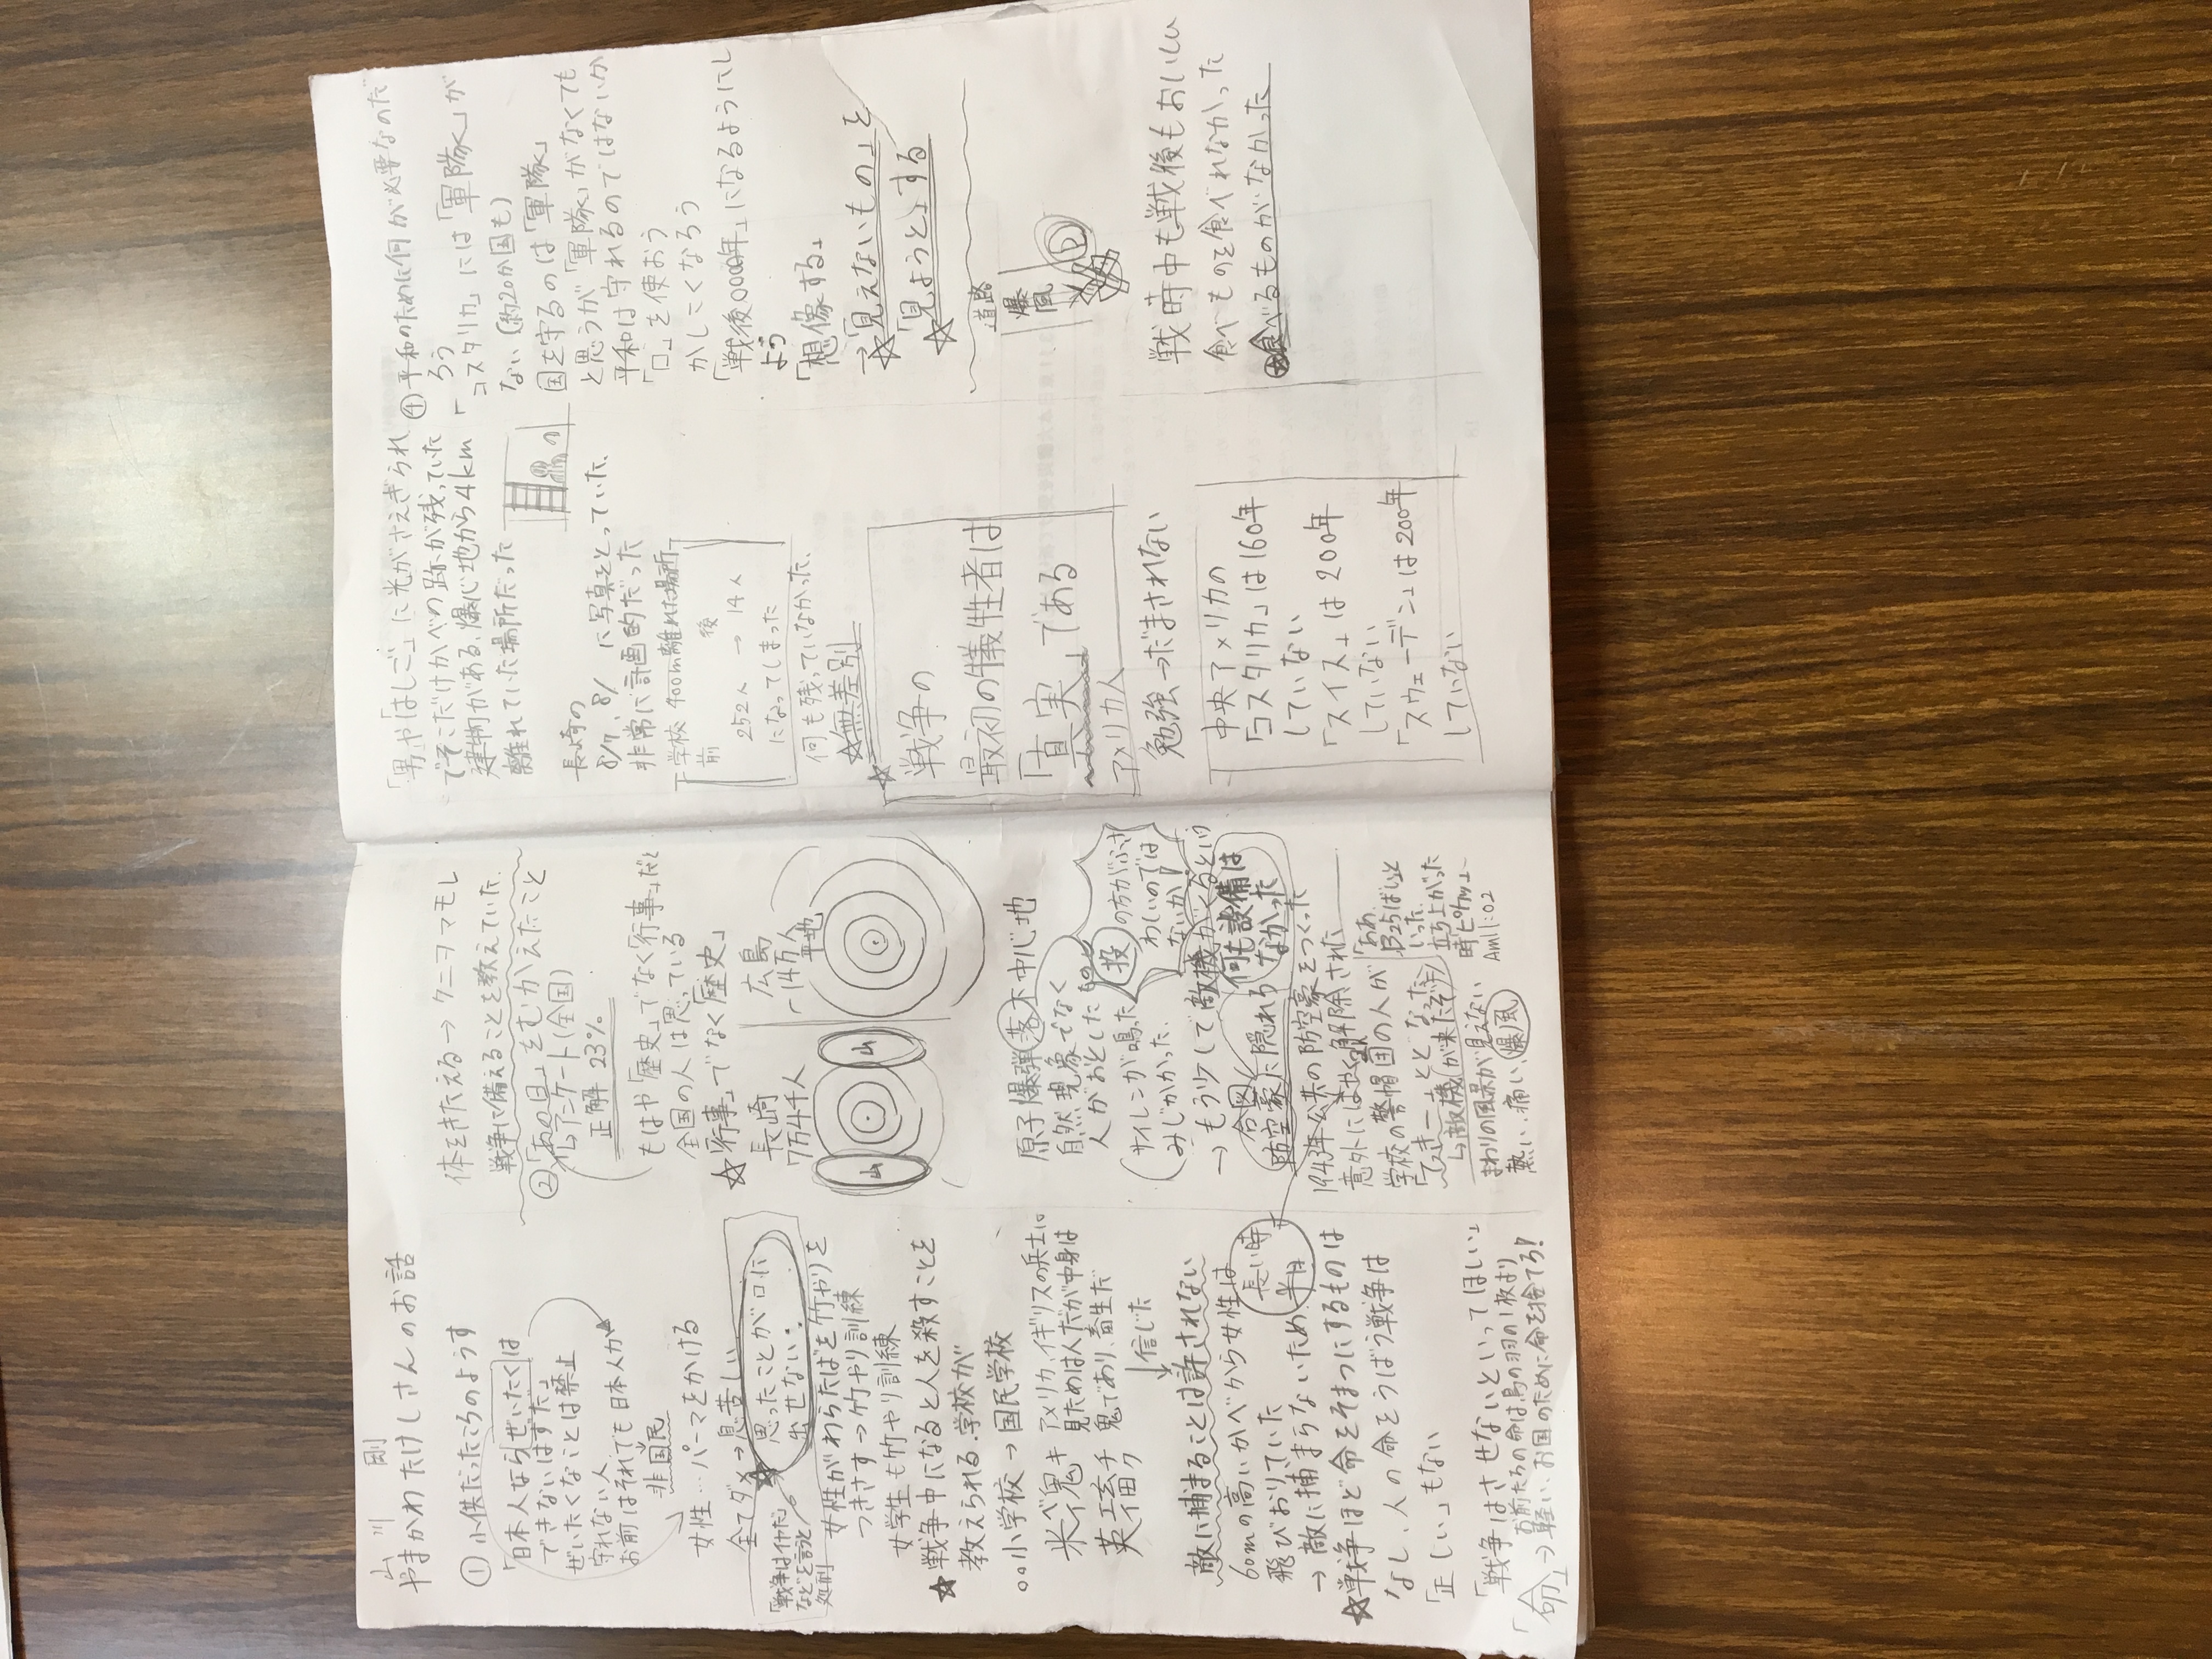 山川 剛
やまかわたけしさんのお話
① 小供だったころのようす
「日本人ならぜいたくは
できないはずだ」
ぜいたくなことは禁止
守れない人
お前はそれでも日本人か
非国民
女性…パーマをかける
全てダメ→息苦しい
思ったことが口に
出せない…
「戦争はイヤだ」
などを言うと
処刑
女性がわらたばを竹やりを
つきさす→竹やり訓練
女学生も竹やり訓練
☆戦争中になると人を殺すことを
教えられる…学校が
小学校→国民学校
米 ベイ 鬼 キ
英 エイ 畜 チク
アメリカ、イギリスの兵士は
見ためは人だが中身は
鬼であり、畜生だ
↓信じた
敵に捕まることは許されない
60mの高いかべから女性は
飛びおりていた
→敵に捕まらないため
長い時
半日
☆戦争ほど命をそまつにするものは
なし、人の命をうばう戦争は
「正しい」もない
「戦争はさせないといってほしい」
「命」→軽い
お前たちの命は、鳥の羽の1枚より
お国のために命を捨てろ!
体をきたえる→クニヲマモレ
戦争に備えることを教えていた
②「あの日」をむかえたこと
アンケート(全国)
正解 23%
もはや「歴史」でなく「行事」だと
全国の人は思っている
☆「行事」でなく「歴史」
長崎
7万4千人
山
山
広島
14万人
平地
原子爆弾落下中心地
自然現象でなく
人がおとした
投
の方がふさ
わしいのでは
ないか!
(サイレンが鳴った
みじかかった、
→もう少しで敵機がくるという
合図
防空豪に隠れろ
何も設備は
なかった
1943年公共の防空豪をつくった
意外にはやく解除された
学校の警帽団の人が
「てっきー」とどなった
↳敵機が来たぞ
「ああ、
B25ばい」と
いった
立ち上がった
時ピカッ
AM11:02
まわりの風景が見えない
熱い、痛い、爆風
「男」や「はしご」に光がさえぎられ
てそこだけかべの跡が残っていた
建物がある、爆心地から4km
離れていた場所だった
長崎の
8/7、8/ に写真をとっていた、
非常に計画的だった
学校 400m離れた場所
前 後
252人 → 14人
になってしまった
何も残っていなかった、
☆無差別
☆戦争の
最初の犠牲者は
「真実」である
アメリカ人
勉強→だまされない
中央アメリカの
「コスタリカ」は160年
していない
「スイス」は200年
していない
「スウェーデン」は200年
していない
④平和のために何が必要なのだ
ろう
「コスタリカ」には「軍隊」が
ない(約20か国も)
国を守るのは「軍隊」
と思うが「軍隊」がなくても
平和は守れるのではないか
「口」を使おう
かしこくなろう
「戦後,000年」になるようにし
よう
「想像する」
☆「見えないもの」を
☆「見ようと」する
道路
爆風
戦時中も戦後もおいしい
食べものを食べれなかった
食べるものがなかった